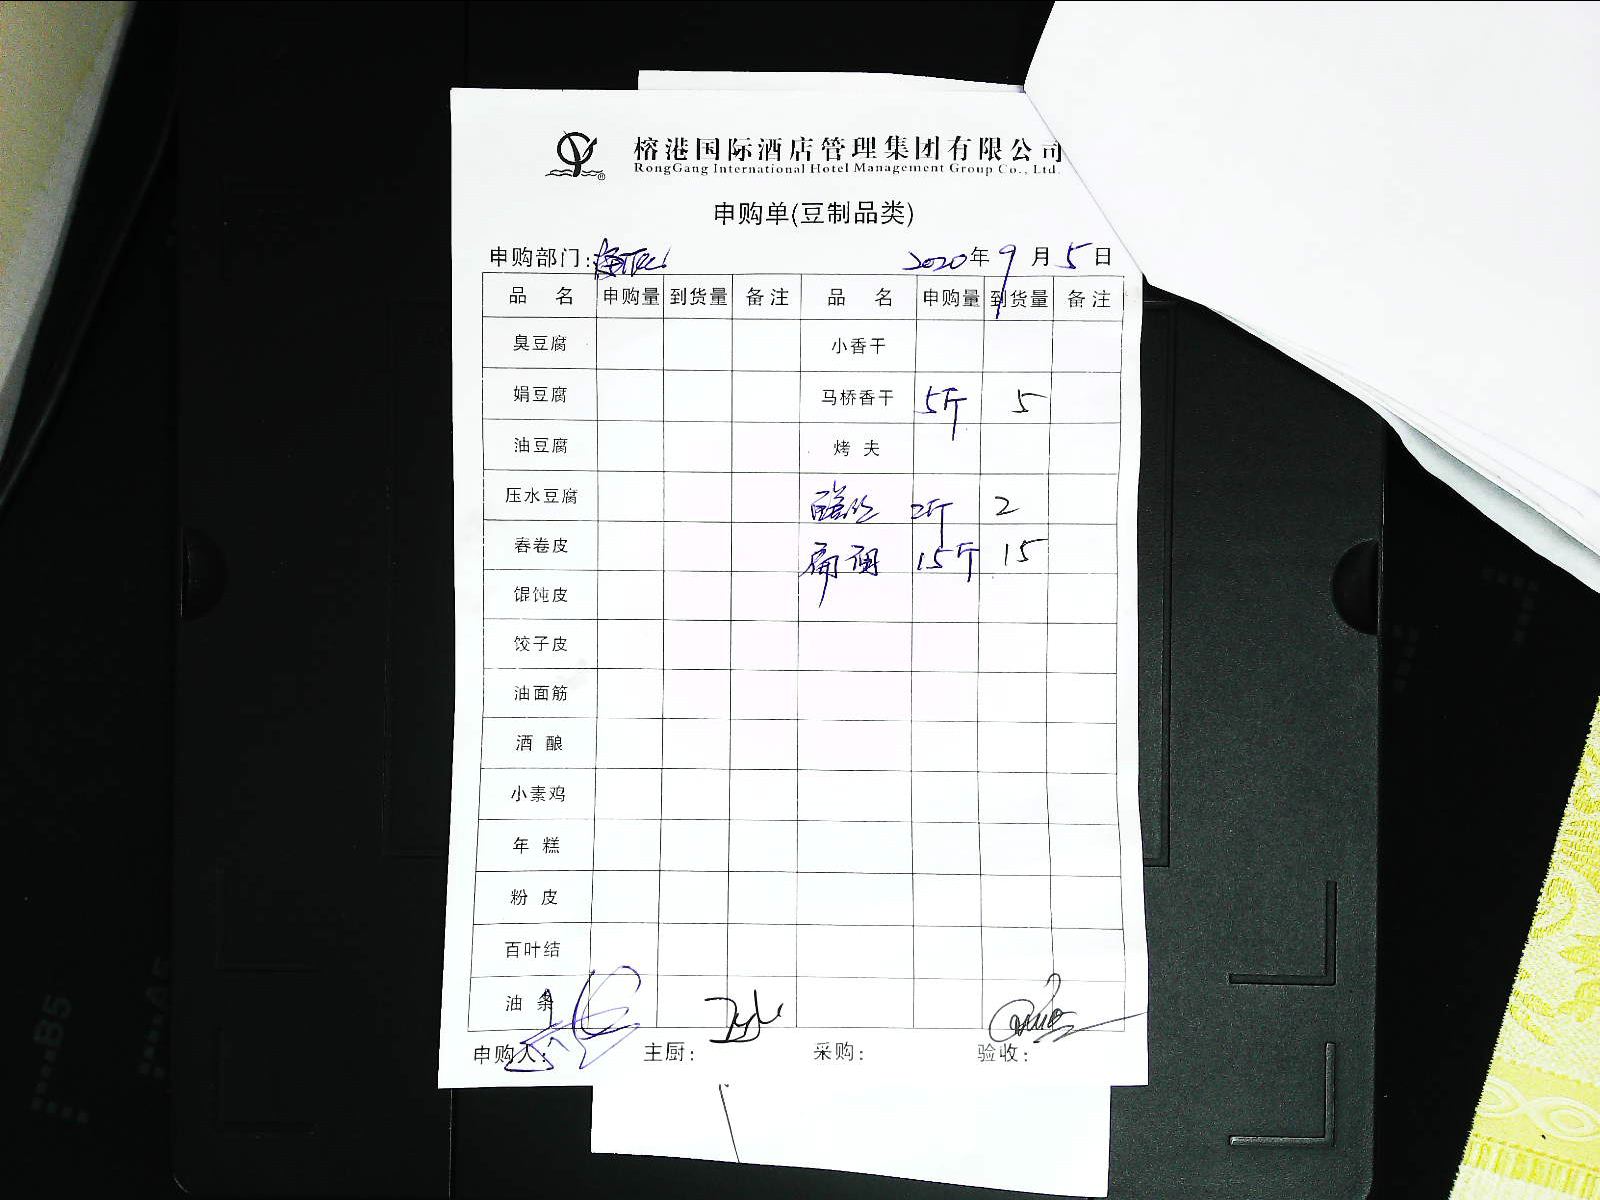 榕港国际酒店管理集团有限公司
RongGang International Hotel Management Group Co., Ltd.
申购单(豆制品类)
申购部门: 2020年9月5日
品 名 申购量 到货量 备注 品 名 申购量 到货量 备注
臭豆腐 小香干
娟豆腐 马桥香干 5斤 5
油豆腐 烤夫
压水豆腐 2斤 2
春卷皮 15斤 15
馄饨皮
饺子皮
油面筋
酒酿
小素鸡
年糕
粉皮
百叶结
油条
申购人: 主厨: 采购: 验收:
B5